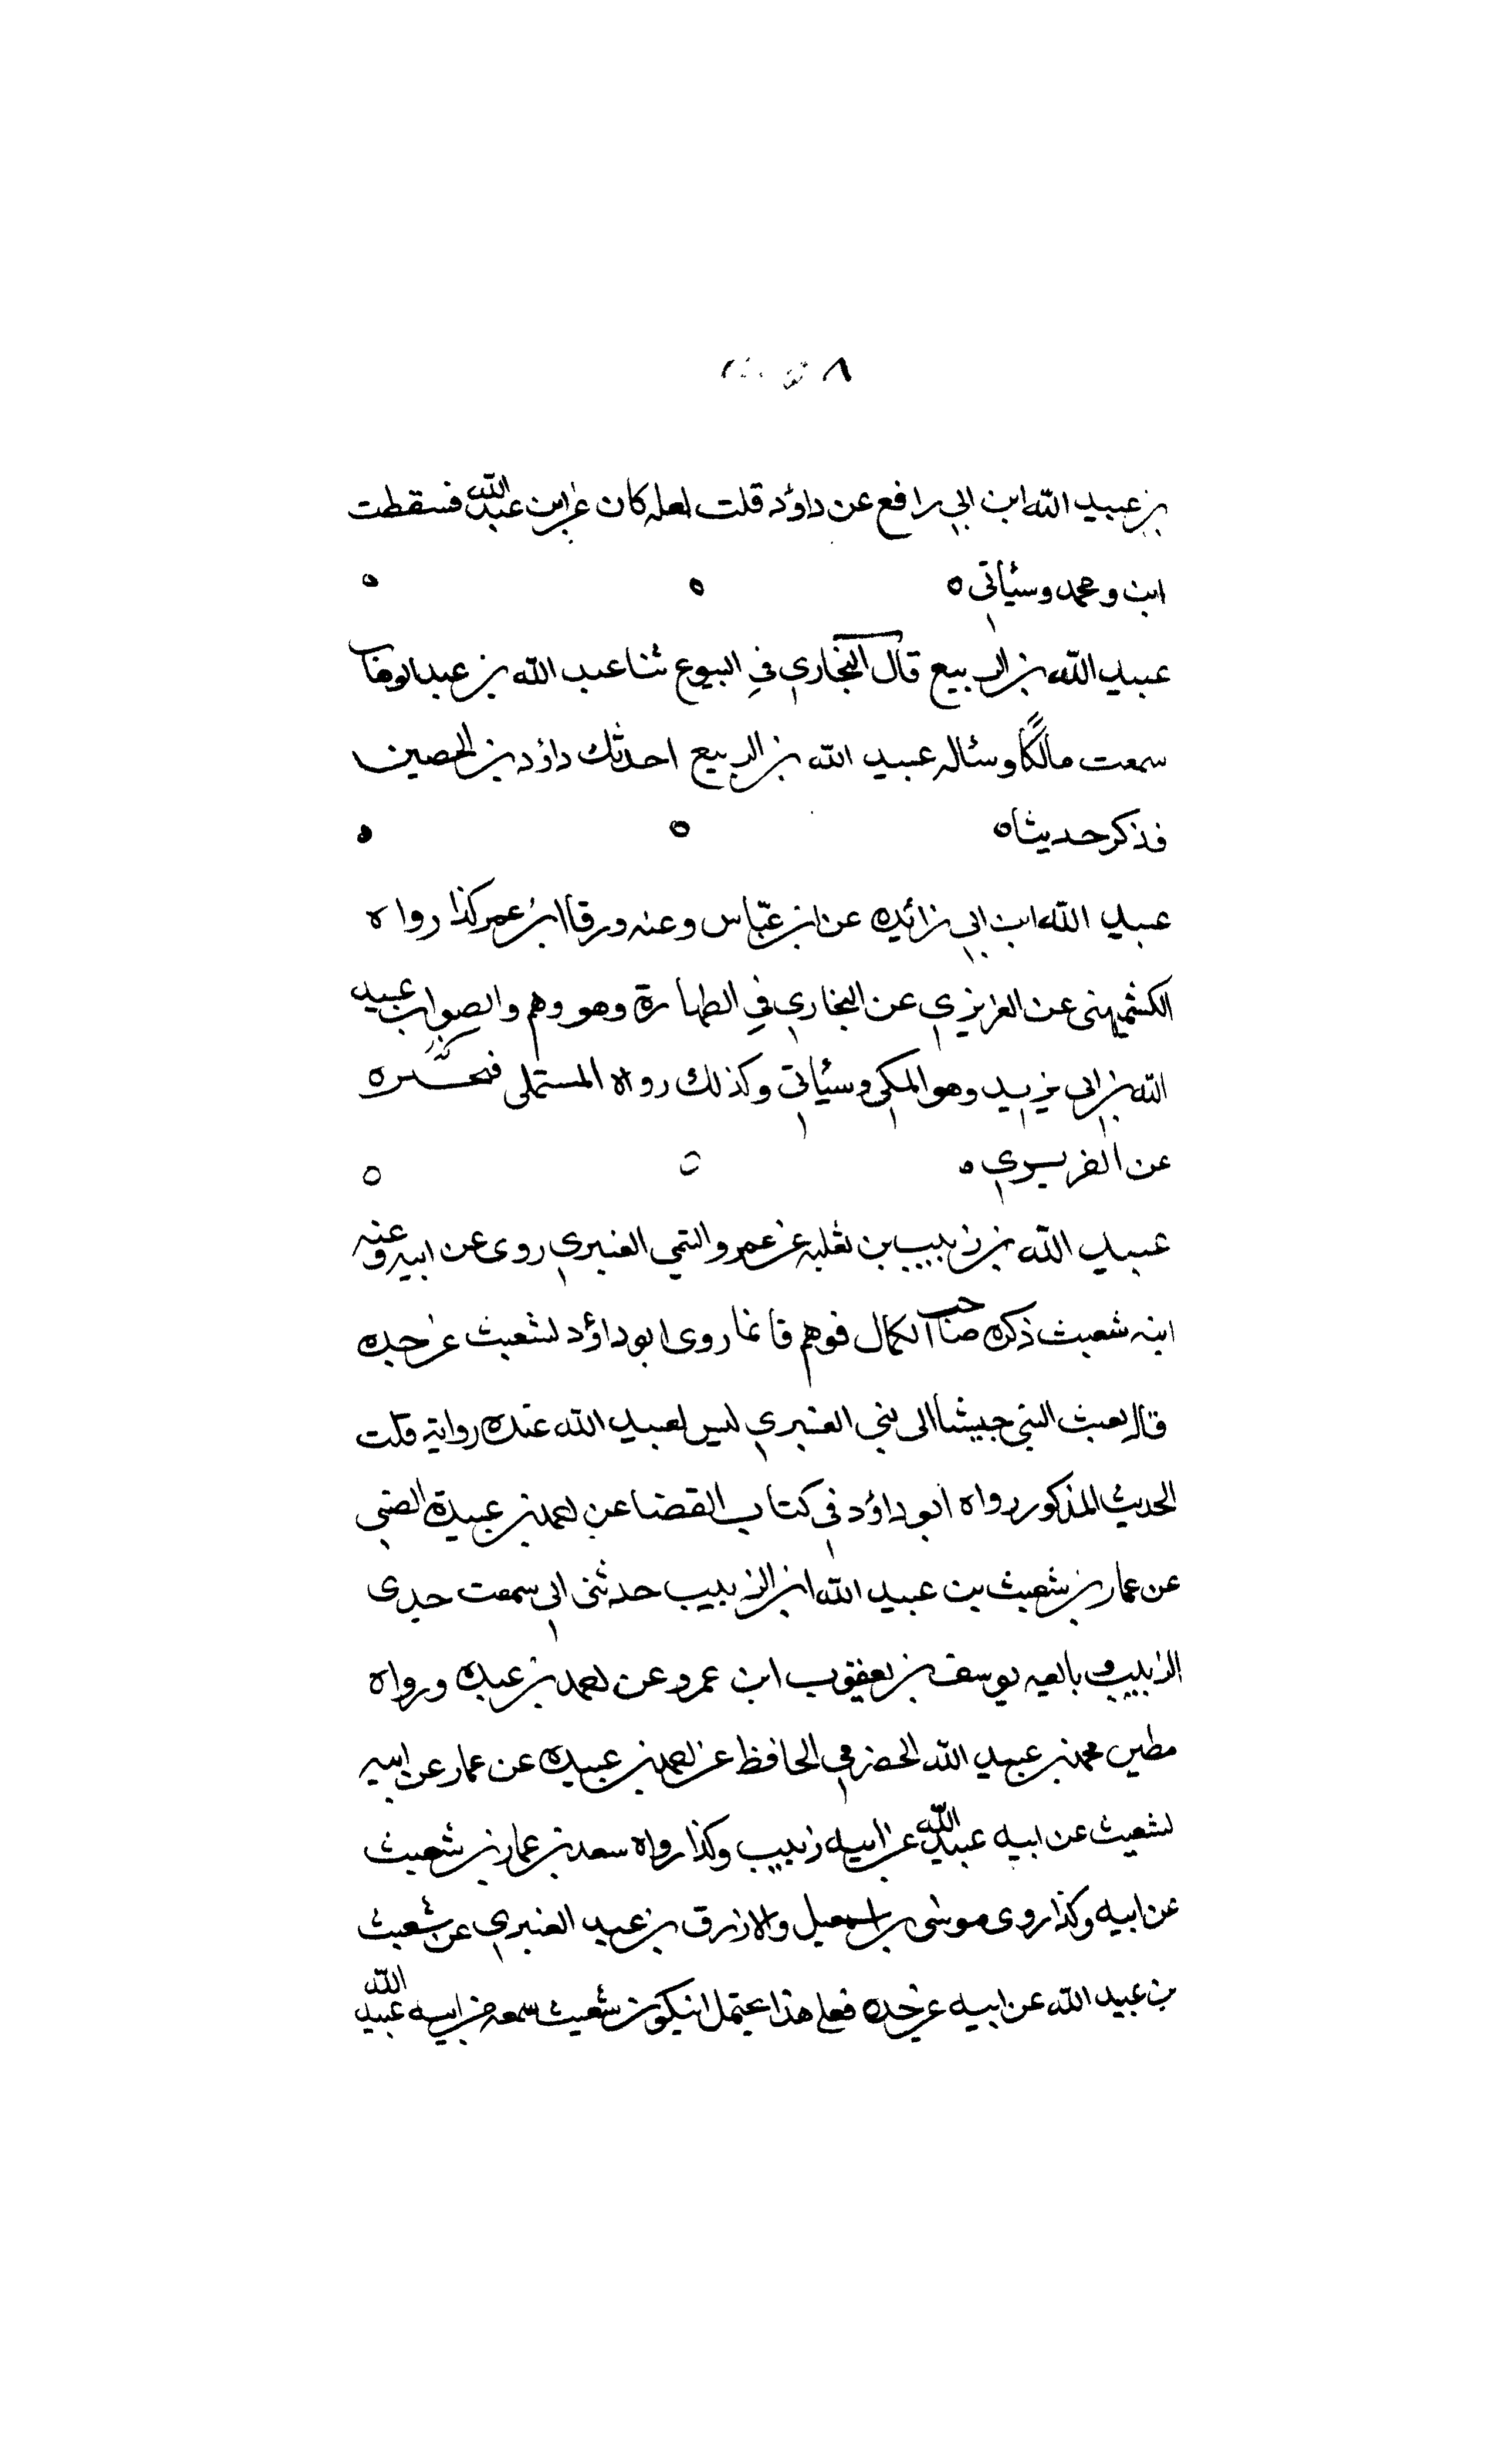 بن عبيد الله ابن ابي رافع عن داؤد قلت لعله كان عن ابن عبد الله فسقطت
ابن ومحمد وسيأتي ه ه ه
عبيد الله بن الربيع قال البخاري في البيوع ثنا عبد الله بن عبد الوهاب
سمعت مالكًا وسئاله عبيد الله بن الربيع احدثك داؤد بن الحصين
فذكر حديثا ه ه ه
عبيد الله ابن ابي زائده عن ابن عبّاس وعنه ورقا ابن عمر كذا رواه
الكشميهني عن العزيزي عن البخاري في الطهارة وهو وهم والصواب عبيد
الله بن ابي يزيد وهو المكي وسيأتي وكذلك رواه المستملي
عن الفربري ه ه ه
عبيد الله بن زبيب بن ثعلبه بن عمرو التمي العنبري روى عن ابيه وعنه
ابنه شعيث ذكره صاحب الكمال فوهم فانما روى ابو داؤد لشعيث عن جده
قال بعث النبي جيشا الى بني العنبري ليس لعبيد الله عنده رواية قلت
الحديث المذكور رواه ابو داؤد في كتاب القضا عن احمد بن عبيدة الضبي
عن عمار بن شعيث بن عبيد الله ابن الزبيب حدثني ابي سمعت جدي
الزبيب وبالعيه يوسف بن يعقوب ابن عمرو عن احمد بن عبده ورواه
مطين محمد بن عبيد الله الحضرمي الحافظ عن احمد بن عبيده عن عمار عن ابيه
لشعيث عن ابيه عبيد الله عن ابيه زبيب وكذا رواه سعد بن عمار بن شعيث
عن ابيه وكذا روى موسى بن اسمعيل والازرق بن عبيد العنبري عن شعيث
بن عبيد الله عن ابيه عن جده فعلى هذا يحتمل ان يكون شعيث سمعه من ابيه عبيد الله